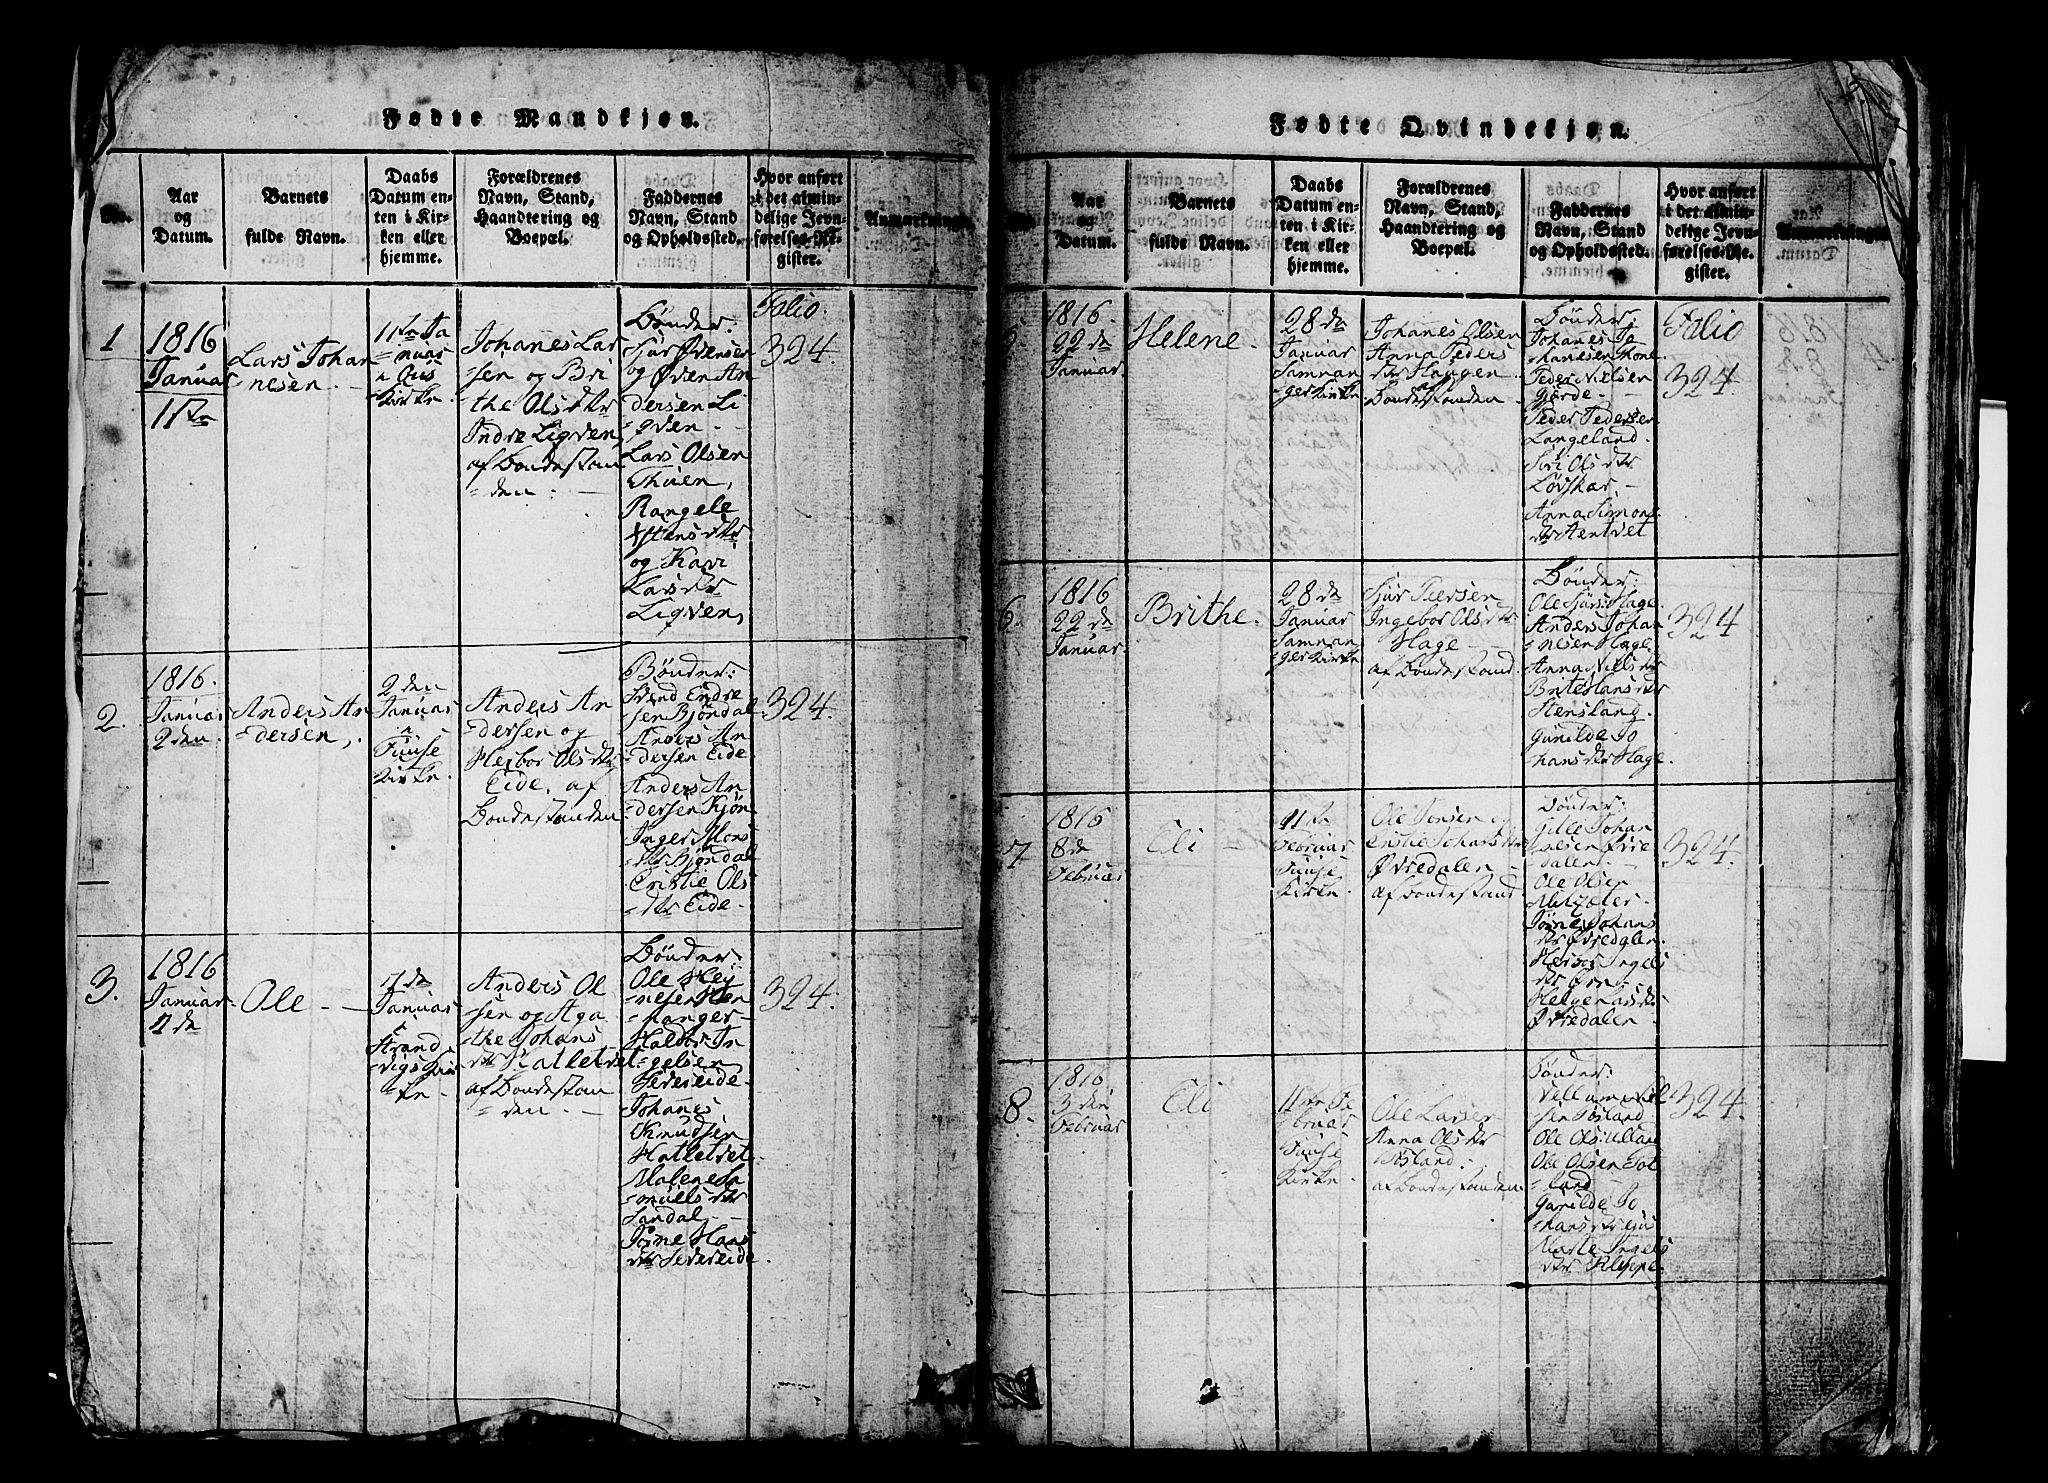 Fødte Mandkjøn.
No.
Aar
og
Datum.
Barnets
fulde Navn.
Daabs
Datum en-
ten i Kir-
ken eller
hjemme.
Forældrenes
Navn, Stand,
Haandtering og
Boepæl.
Faddernes
Navn, Stand
og Opholdssted.
Hvor anført
i det almin-
delige Jevn-
førelses-Re-
gister.
Anmærkninger
1
1816
Januar
11te
Lars Johan
nesen.
11te Ja
nuar
i Ous
Kirke
Johanes Lar
sen og Bri
the Olsdtr
Indre Liqven,
af Bondestan
den.
Bønder:
Sjur Øvensen
og Øven An
dersen Li
qven
Lars Olsen
Thuen,
Rangele
Hensdtr
og Kari
Larsdtr
Liqven,
Folio.
324.
2.
1816.
Januar
2den
Anders An
dersen,
2den
Januar
i
Fuuse
Kirke.
Anders An
dersen og
Herbor Olsdtr
Eide, af
Bondestanden
Bønder:
Svend Endre
sen Bjøndal
Anders An
dersen Eide
Anders An
dersen Kjøn
Inger Mons
dtr Bjøndal
Cristie Ols
dtr Eide.
324.
3.
1816
Januar
Ole
7de
Januar
i
Strand
vigs Kir
ke
Anders Ol
sen og Aga
the Johans
dtr Hatletvet
af Bondestan
den.
Bønder:
Ole Hey
nesen Hen
anger
Haldor In
gelsen
Sevreide
Johanes
Knudsen
Hatletvet
Malene Sa
muelsdtr
Sandal
Jørne Hans
dtr Sevreide.
324.
Fødte Qvindekjøn.
Aar
og
Datum.
Barnets
fulde Navn.
Daabs
Datum en-
ten i Kir-
ken eller
hjemme.
Forældrenes
Navn, Stand,
Haandtering og
Boepæl.
Faddernes
Navn, Stand
og Opholdssted.
Hvor anført
i det almin-
delige Jevn-
førelses-Re-
gister.
Anmærkninger
5.
1816.
22de
Januar
Helene.
28de
Januar
Samnan
ger Kirke
Johanes Olsen
Anna Peders
dtr Haugen
af
Bondestanden
Bønder:
Johanes Jo
hanesen Mone
Peder Nielsen
Gjerde
Peder Pedersen
Langeland
Siri Olsdtr
Løvskar
Anna Simons
dtr Aentvet
Folio
324.
6.
1816
22de
Januar
Brithe.
28de
Januar
Samnan
ger Kirke
Sjur Peersen
Ingebor Olsdtr
Hage
af Bondestand.
Bønder:
Ole Sjurs: Hage
Anders Johan
nesen Hage.
Anna Nielsdtr
Brite Hansdtr
Stenslang
Gunilde Jo
hansdtr Hage.
324
7
1816
8de
Februar
Eli
11te
Februar
Fuuse
Kirke.
Ole Jonsen og
Cristie Johansdtr
Øvredalen
af Bondestand.
Bønder:
Gille Johan
nesen Øvre
dalen.
Ole Olsen
Jørne Johans
dtr Øvredalen.
Herbor Ingels
dtr Ørn
Helge Larsdtr
Øvredalen
324.
8.
1816.
3den
Februar
Eli
11te Fe
bruar
Fuuse
Kirke
Ole Larsen
Anna Olsdtr
af Bondestanden.
Bønder:
Vellum Niel
sen
Ole Ols:
Ole Olsen
land
Gurilde Jo
hansdtr
Marte Ingels
dtr Kleppe.
324.